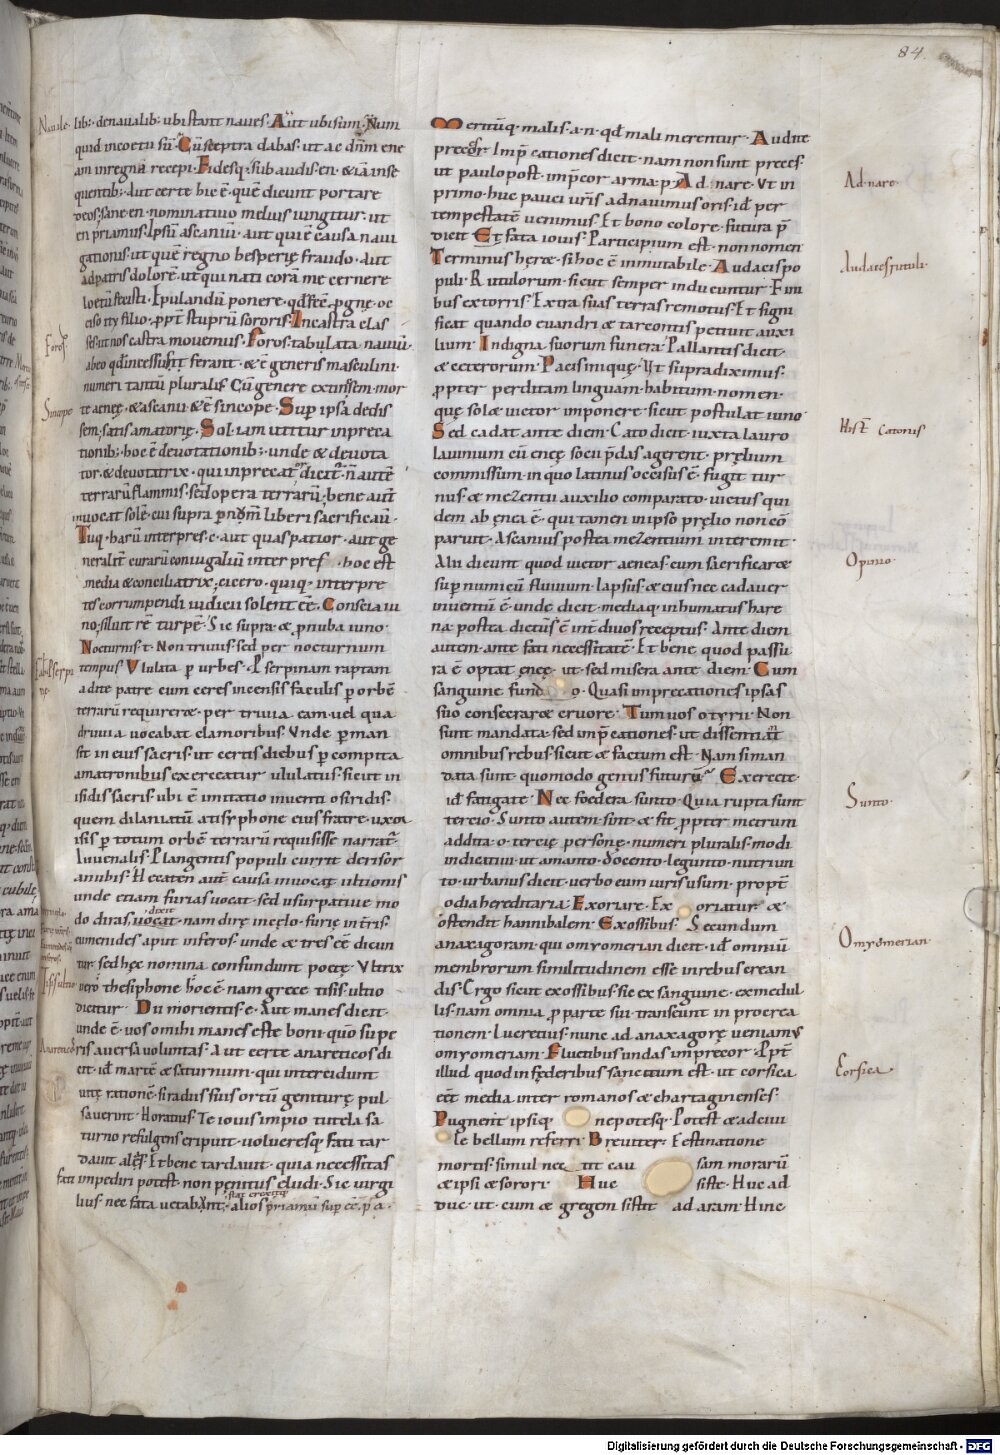 84.
Nauale
lib; de naualib; ubi stant naues. Aut ubi sum. Num
quid incoetu sū. Cū sceptra dabas. ut ac dn̄m ene
am in regna recepi. Fidesq; sub audis en. & iā inse
quentib; Aut certe hic ē. quē dicunt portare
deos; sane en nominatiuo melius iungitur. ut
en priamus. Ipsū ascaniū. aut qui ē causa naui
gationis. ut quē regno hesperię fraudo. aut
ad patris dolorē. ut qui nati corā me cernere
loetū fecisti. Epulandū ponere. qd fēc ꝓgnę. oc
ciso ity filio. ꝓpt̄ stuprū sororis. In castra clas
ses. ut nos castra mouemus. Foros. tabulata nauiū.
abeo qd incessus ferant. & ē generis masculini.
numeri tantū pluralis. Cū genere extinssem. mor
te aenęę. & ascanii. & ē sincope. Sup ipsā dedis
sem. satis amatorię. Sol. iam utitur in preca
tionib; hoc ē deuotationib; unde & deuota
tor. & deuotatrix. qui inprecat̄ dicit̄. n̄ autē
terrarū flammis. sed opera terrarū. bene aut̄
inuocat solē. cui supra
Tuq. harū interpres. c. aut quas patior. aut ge
neralit̄ curarū coniugaliū inter pres. hoc est
media & conciliatrix; cicero. quiq; interpre
tes corrumpendi iudicii solent eē. Conscia iu
no; siluit rē turpē. Sic supra. & ꝓnuba iuno.
Nocturnis. t. Non triuiis. sed per nocturnum
tempus. Vlulata ꝑ urbes. Pserpinam raptam
a dite patre cum ceres incensis faculis ꝑ orbē
terrarū requireræ. per triuia eam. uel qua
driuia uocabat clamoribus. Vnde ꝑman
sit in eius sacris. ut certis diebus ꝑ compita
amatronibus exerceatur ululatus. sicut in
isidis sacris. ubi ē imitatio inuenti osiridis.
quem dilaniatū atisyphone eius fratre. uxor
isis ꝑ totum orbē terrarū requisisse narrat̄.
Iuuenalis. Plangentis populi currit derisor
anubis. Hecaten aut̄ causa inuocat ultionis
unde etiam furias uocat. sed usurpatiue mo
do diras, uocat. nam dirę in cęlo. furię in t̄ris.
eumenides aput inferos. unde & tres eē dicun
tur. sed hęc nomina confundunt poetę. Vltrix
uero thesiphone hoc ē. nam grece tisis. ultio
dicitur. Dii morientis. e. Aut manes dicit.
unde ē. uos o mihi manes este boni. quō supe
ris auersa uoluntas. Aut certe anareticos di
cit. id martē & saturnum. qui intercidunt
uitę rationē. si radius suis ortū geniturę pul
sauerint. Horatius. Te iouis impio tutela sa
turno refulgens eripuit. uolucresq; fati tar
dauit ales. Et bene tardauit. quia necessitas
fati impediri potest. non penitus eludi. Sic uirgi
lius. nec fata uetabant. alios priamū sup eē. ꝑ a.
Foros.
Sincope
Meritūq; malis. a. n. qd mali merentur. Audite
precor. Impcationes dicit. nam non sunt preces.
ut paulo post. impcor arma. p. Ad. nare. Vt in
primo. huc pauci uris adnauimus oris. id per
tempestatē uenimus. Et bono colore. futura p̄
dicit. Et fata iouis. Participium est. non nomen
Terminus hęræ. si hoc ē inmutabile. Audacis po
puli. Rutulorum. sicut semper inducuntur. Fini
bus extorris. Extra suas terras remotus. Et signi
ficat quando euandri & tarcontis petiuit auxi
lium. Indigna suorum funera. Pallantis dicit.
& ceterorum. Pacis inique. Vt supra diximus.
ꝓpter perditam linguam. habitum. nomen.
quę solæ uictor imponere. sicut postulat iuno
Sed cadat ante diem. Cato dicit. iuxta lauro
lauinium cū enęę socii p̄das agerent. pręlium
commissum. in quo latinus occisus ē. fugit tur
nus. & mezentii auxilio comparato. uictus qui
dem ab ęnea ē. qui tamen in ipso pręlio non cō
paruit. Ascanius postea mezentium interemit.
Alii dicunt quod uictor aeneas. cum sacrificaræ
sup numicū fluuium. lapsus. & eius nec cadauer
inuentū ē. unde dicit. mediaq; inhumatus hare
na. postea dictus ē int̄ diuos receptus. Ante diem
autem. ante fati necessitatē. Et bene quod passu
ra ē optat enęę. ut. sed misera ante diem. Cum
sanguine fundo. Quasi imprecationes ipsas
suo consecraræ cruore. Tum uos o tyrii. Non
sunt mandata. sed impcationes. ut dissentiat̄
omnibus rebus. sicut & factum est. Nam siman
data sunt. quomodo genus futurū. Exercete.
id fatigate. Nec foedera sunto. Quia rupta sunt
tercio. Sunto autem. sint. & fit ꝓpter metrum
addita. o. tercię personę. numeri pluralis. modi
indicatiui. ut amanto. docento. legunto. nutriun
to. urbanus dicit. uerbo cum iuris usum. propt̄
odia hereditaria. Exoriare. Exoriatur. &
ostendit hannibalem. Ex ossibus. Secundum
anaxagoram. qui omyomerian dicit. id omniū
membrorum similitudinem esse in rebus crean
dis. Ergo sicut ex ossibus. sic ex sanguine. ex medul
lis. nam omnia ꝓ parte sui transeunt in procrea
tionem. Lucretius. nunc ad anaxagorę ueniamus
omyomeriam. Fluctibus undas imprecor. Ppt̄
illud quod in fęderibus sanctum est. ut corsica
eēt media inter romanos & chartaginenses.
Pugnent ipsiq; nepotesq. Potest & ad ciui
le bellum referri. Breuiter. Festinatione
mortis. simul nec uti cau sam morarū
& ipsi & sorori. Huc siste. Huc ad
duc. ut. cum & gregem sistit ad aram. Hinc
Ad nare.
Audaces rutuli.
Hist̄ Catonis
Opinio.
Sunto.
Omyomerian.
Corsica.
Digitalisierung gefördert durch die Deutsche Forschungsgemeinschaft - DFG